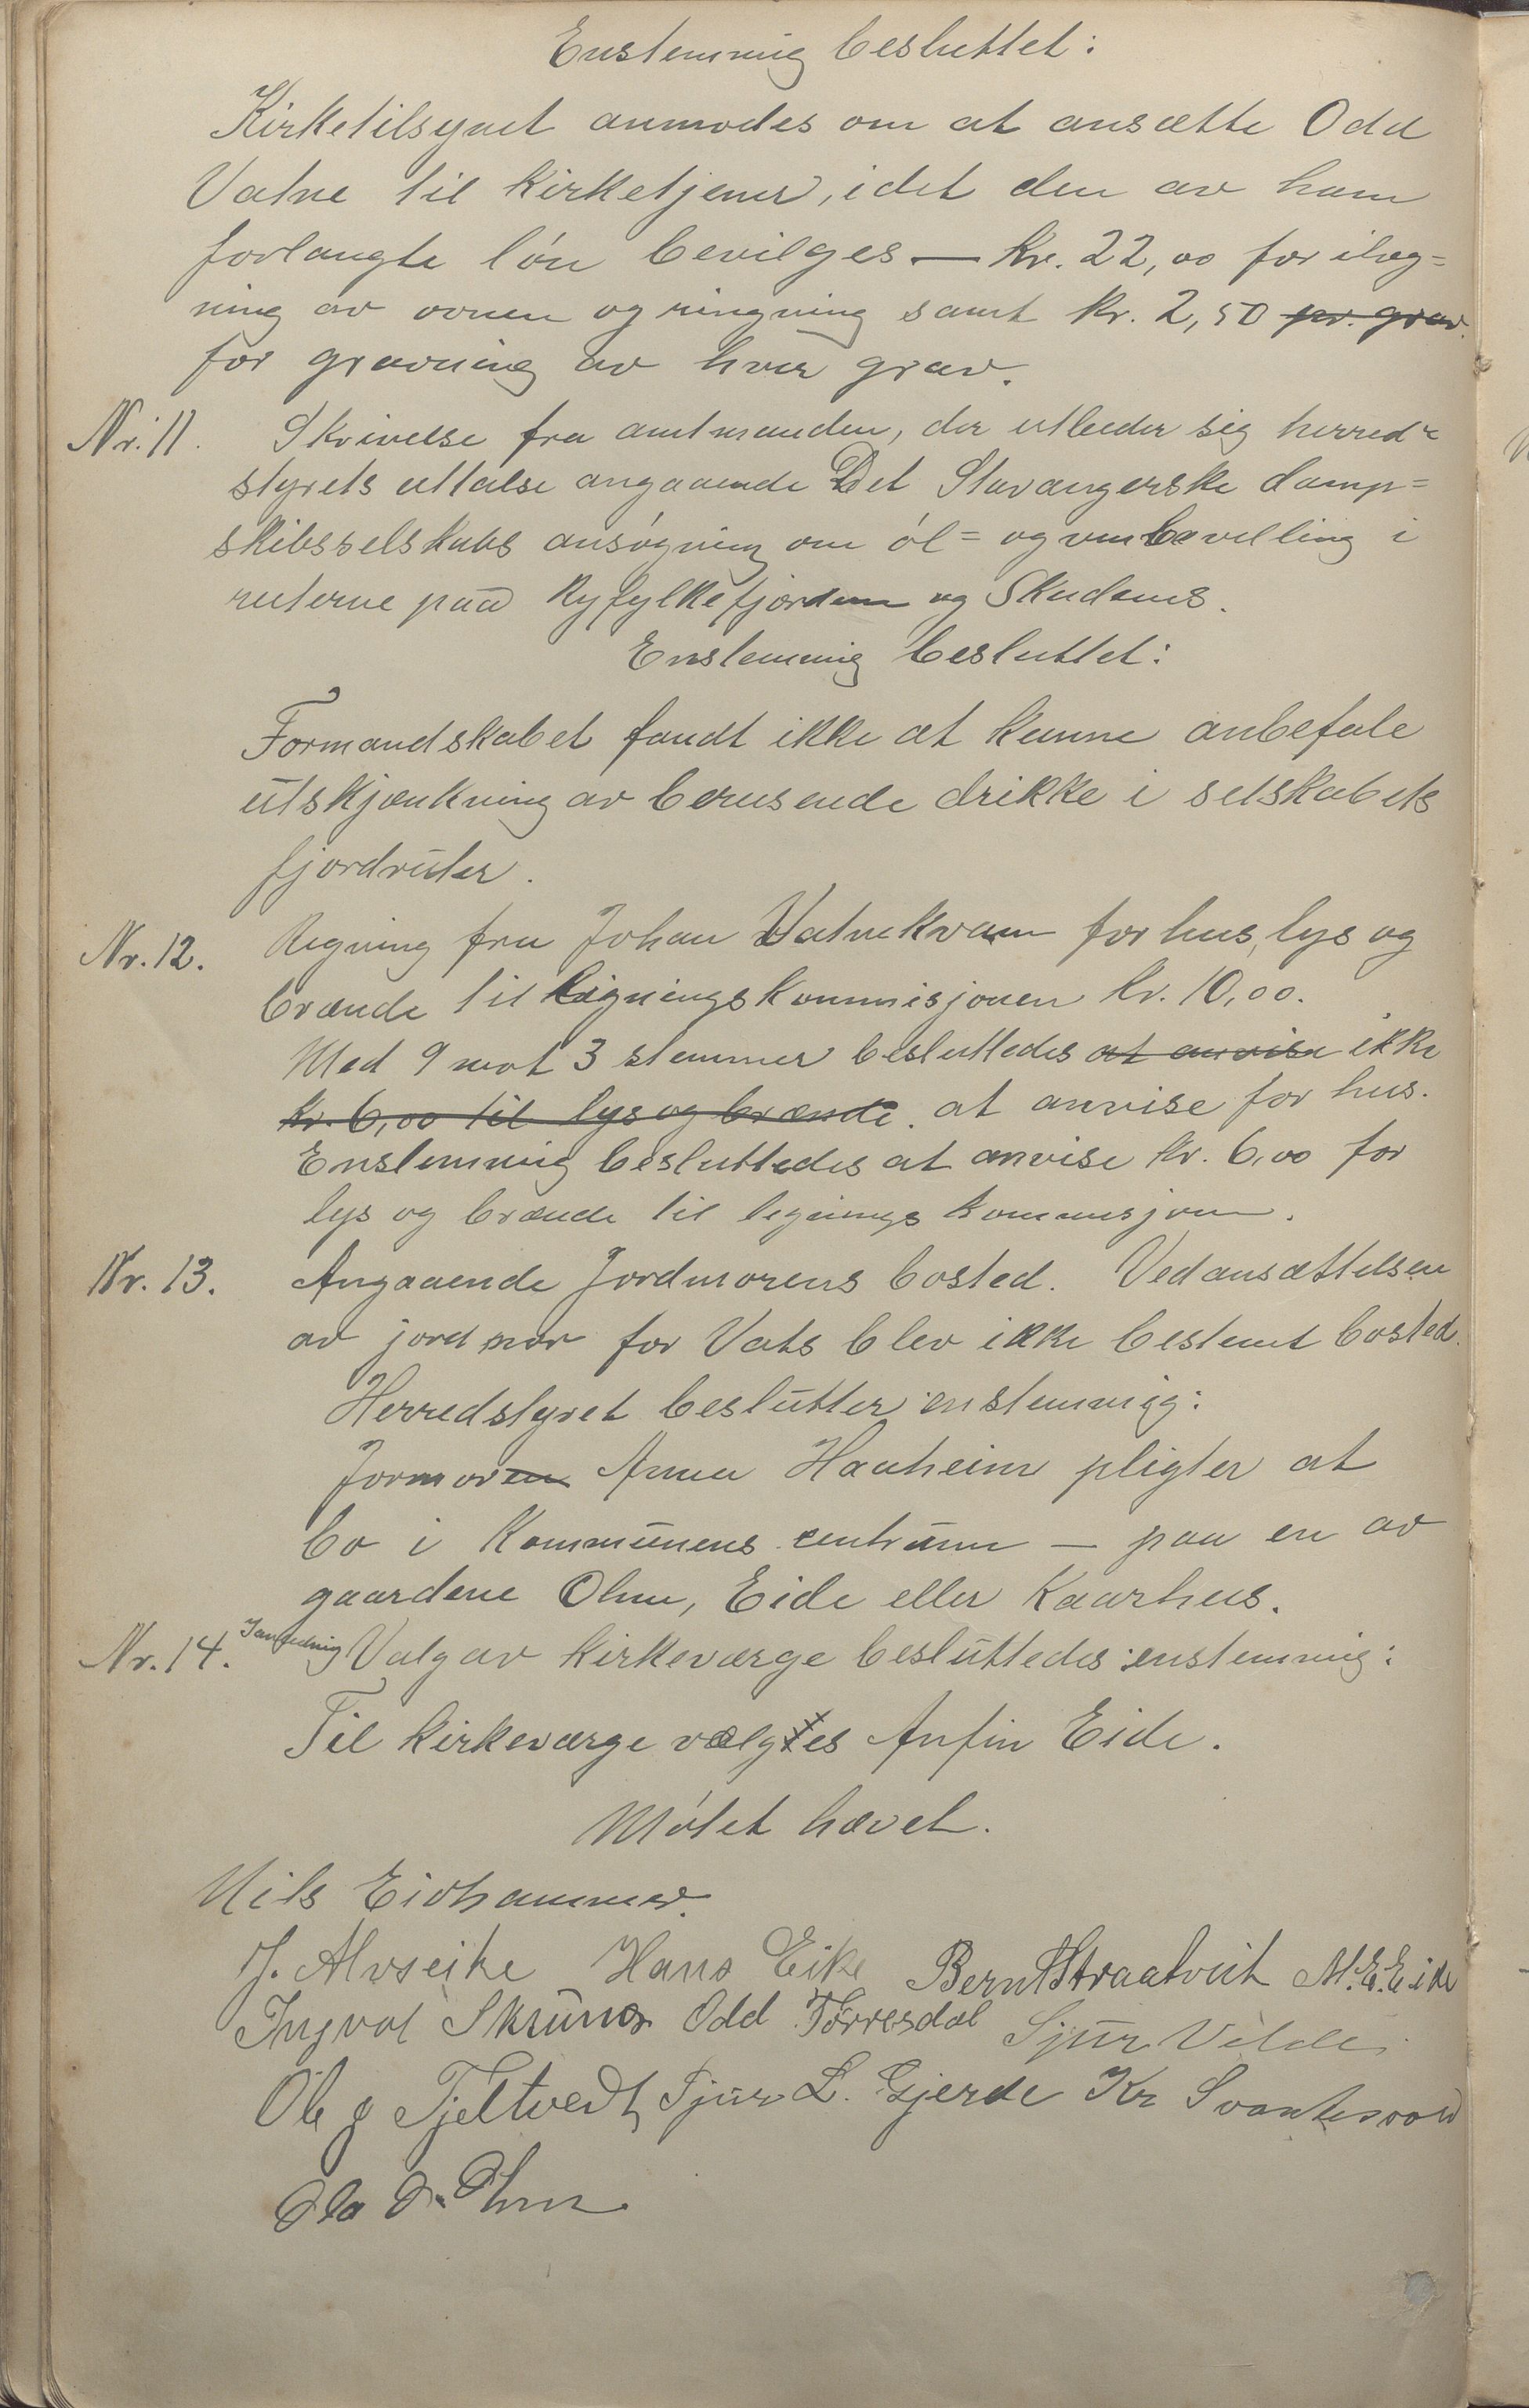 Enstemmig besluttet:
Kirketilsynet anmodes om at ansætte Odd
Vatne til kirketjener, idet den av ham
forlangte lön bevilges — kr. 22,00 for ilæg=
ning av ovnen og ringning samt kr. 2,50 pr. grav.
for gravning av hver grav.
Nr. 11. Skrivelse fra amtmanden, der utbeder sig herreds=
styrets uttalse angaaende Det Stavangerske damp=
skibsselskabs ansögning om öl= og vinbevilling i
ruterne paa Ryfylkefjorden og Skudenes.
Enstemmig besluttet:
Formandskabet fandt ikke at kunne anbefale
utskjænkning av berusende drikke i selskabets
fjordruter.
Nr. 12. Regning fra Johan Vatnekvam for hus, lys og
brænde til ligningskommisjonen kr. 10,00.
Med 9 mot 3 stemmer besluttedes at anvise ikke
kr. 6,00 til lys og brænde. at anvise for hus.
Enstemmig besluttedes at anvise kr. 6,00 for
lys og brænde til lignings kommisjonen.
Nr. 13. Angaaende Jordmorens bosted. Ved ansættelsen
av jordmor for Vats blev ikke bestemt bosted.
Herredstyret beslutter enstemmig:
Jormoren Anna Hauheim pligter at
bo i Kommunens centrum — paa en av
gaardene Ohm, Eide eller Kaarhus.
Nr. 14. I anledning Valg av kirkeværge besluttedes enstemmig:
Til kirkeværge vælgtes Anfin Eide.
Mötet hævet.
Nils Eidhammer.
J. Alvseike Hans Eike Bernt Straatveit M. E. Eike
Ingval Skrunes Odd Torresdal Sjur Velde
Ole G Fjeltvedt Sjur L. Gjerde Kr Svartesvad
Ola O. Ohm